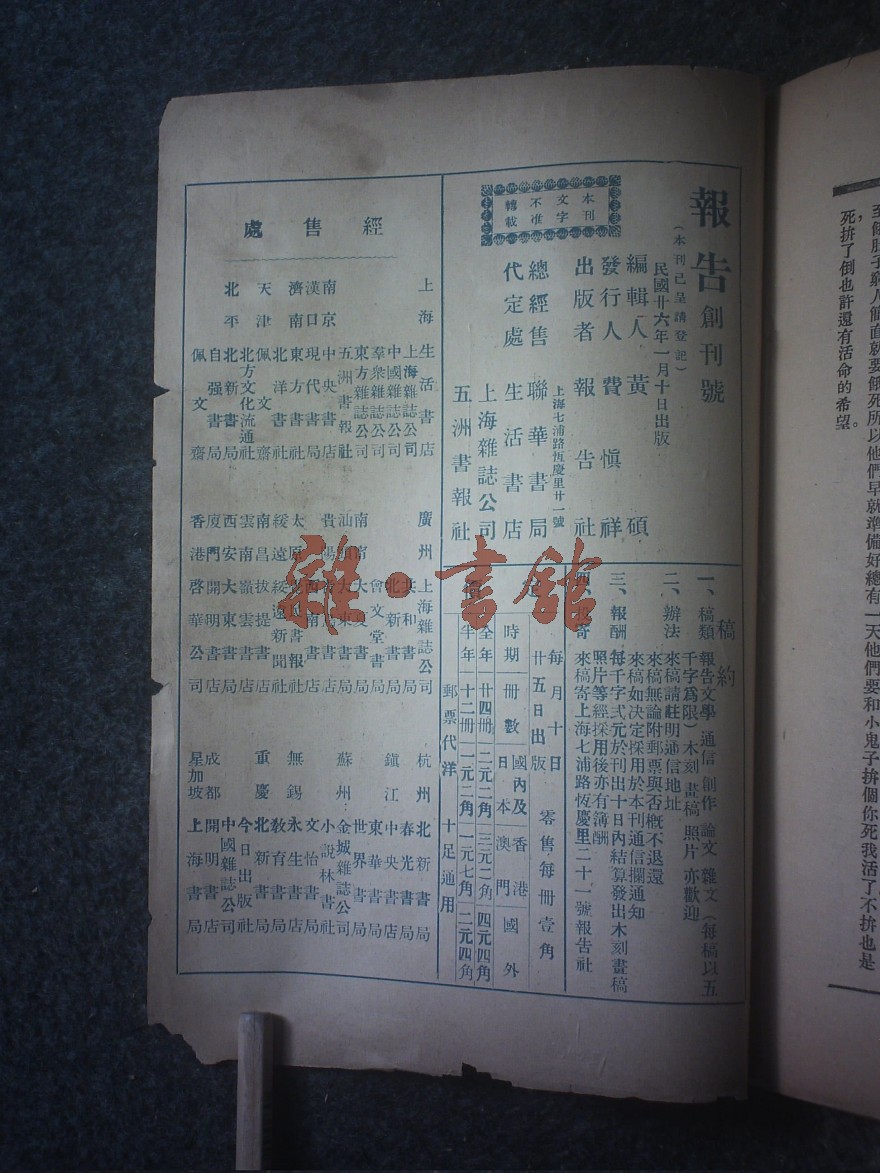 至個肚子窮人館面就要餓死所以他們早就準備好總有一天他們要和小鬼子拚個你死我活了不拚也是
死，拚了倒也許還有活命的希望。
報告創刊號
（本刊已呈請登記）
民國廿六年一月十日出版
編輯人 黃碩
發行人 費愼祥
出版者 報告社
上海七浦路恆慶里廿一號
總經售 聯華書局
代定處 生活書店
上海雜誌公司
五洲書報社
本刊
文字
不准
轉載
稿約
一、稿類 報告文學 通信 創作 論文 雜文（每稿以五
千字爲限）木刻 畫稿 照片 亦歡迎
二、辦法 來稿請註明通信地址
來稿無論附郵票與否概不退還
來稿如決定採用於本刊通信擱通知
三、報酬 每千字弍元於刊出十日內結算發出木刻畫稿
照片等經採用後亦有薄酬
四、投寄 來稿寄上海七浦路恆慶里二十一號報告社
每月十日
廿五日出版
零售每冊壹角
定
價
時期 冊數 國內及日本 香港澳門 國外
全年 廿四冊 二元二角 三元二角 四元四角
半年 十二冊 一元二角 一元七角 二元四角
郵票代洋十足通用
經售處
上海 生活書店
上海雜誌公司
中國雜誌公司
羣衆雜誌公司
東方雜誌公司
五洲書報社
南京 中央書店
漢口 現代書局
濟南 東方書社
天津 北洋書社
佩文齋
北方文化流通社
北平 北新書局
自强書局
佩文齋
廣州 上海雜誌公司
共和書局
北新書局
會文堂書局
南甯
汕頭 大東書局
貴陽
西南書店
太原 覺民書報社
綏遠 綏遠新聞社
南昌 拔提書店
雲南 嶺雲書店
西安 大東書局
廈門 開明書店
香港 啓華公司
杭州 北新書局
春光書局
鎭江 中央書店
東華書局
世界書局
蘇州 金城雜誌公司
小說林書社
文怡書店
無錫 永生書店
教育書局
重慶 北新書局
今日出版社
中國雜誌公司
成都 開明書店
星加坡 上海書局
雜·書館